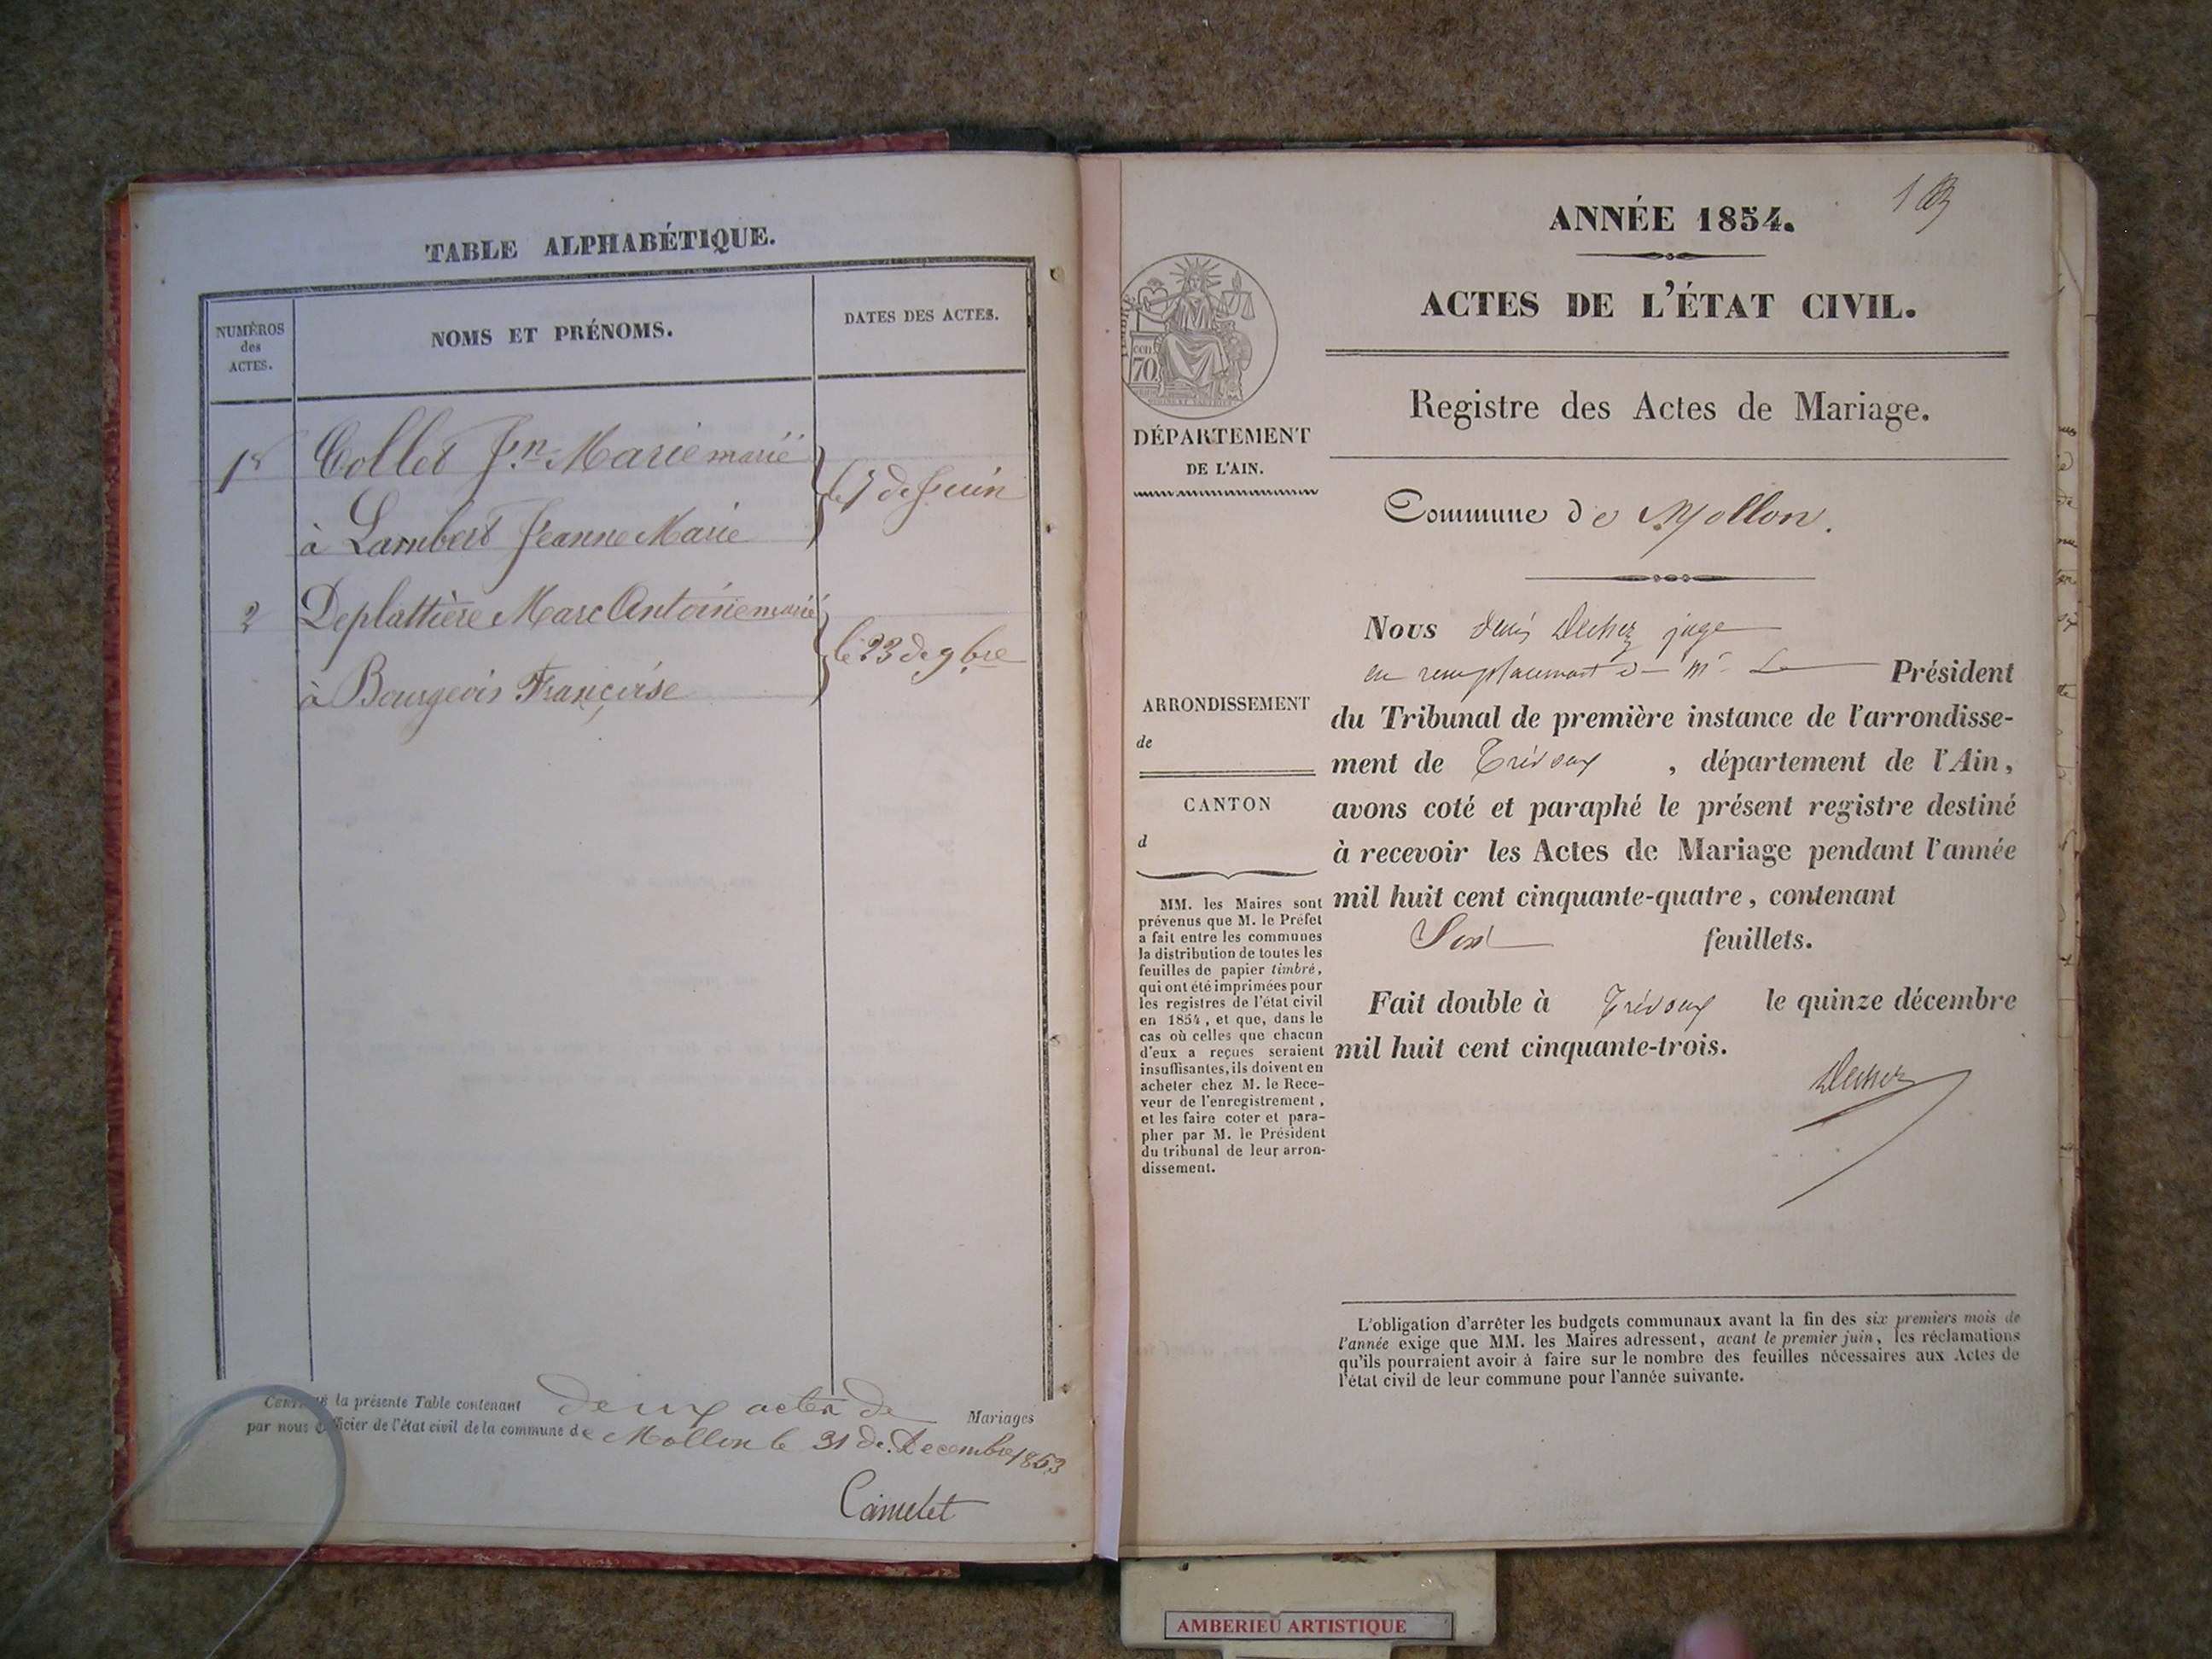 TABLE ALPHABÉTIQUE.
NUMÉROS
des
ACTES.
NOMS ET PRÉNOMS.
DATES DES ACTES.
1er
Collet Jn. Marie marié
à Lambert Jeanne Marie
le 7 de Juin
2
Deplattière Marc Antoine marié
à Bourgeois Françoise
le 23 de 9bre
CERTIFIÉ la présente Table contenant deux actes de Mariages
par nous Officier de l'état civil de la commune de Mollon le 31 de Decembre 1853
Camelet
ANNÉE 1854.
ACTES DE L'ÉTAT CIVIL.
Registre des Actes de Mariage.
Commune de Mollon.
70
DÉPARTEMENT
DE L'AIN.
ARRONDISSEMENT
de
CANTON
d
MM. les Maires sont
prévenus que M. le Préfet
a fait entre les communes
la distribution de toutes les
feuilles de papier timbré,
qui ont été imprimées pour
les registres de l'état civil
en 1854, et que, dans le
cas où celles que chacun
d'eux a reçues seraient
insuffisantes, ils doivent en
acheter chez M. le Rece-
veur de l'enregistrement,
et les faire coter et para-
pher par M. le Président
du tribunal de leur arron-
dissement.
Nous Denis Dechez juge
en remplacement de Mr Le Président
du Tribunal de première instance de l'arrondisse-
ment de Trévoux, département de l'Ain,
avons coté et paraphé le présent registre destiné
à recevoir les Actes de Mariage pendant l'année
mil huit cent cinquante-quatre, contenant
feuillets.
Fait double à Trévoux le quinze décembre
mil huit cent cinquante-trois.
Dechez
L'obligation d'arrêter les budgets communaux avant la fin des six premiers mois de
l'année exige que MM. les Maires adressent, avant le premier juin, les réclamations
qu'ils pourraient avoir à faire sur le nombre des feuilles nécessaires aux Actes de
l'état civil de leur commune pour l'année suivante.
AMBERIEU ARTISTIQUE